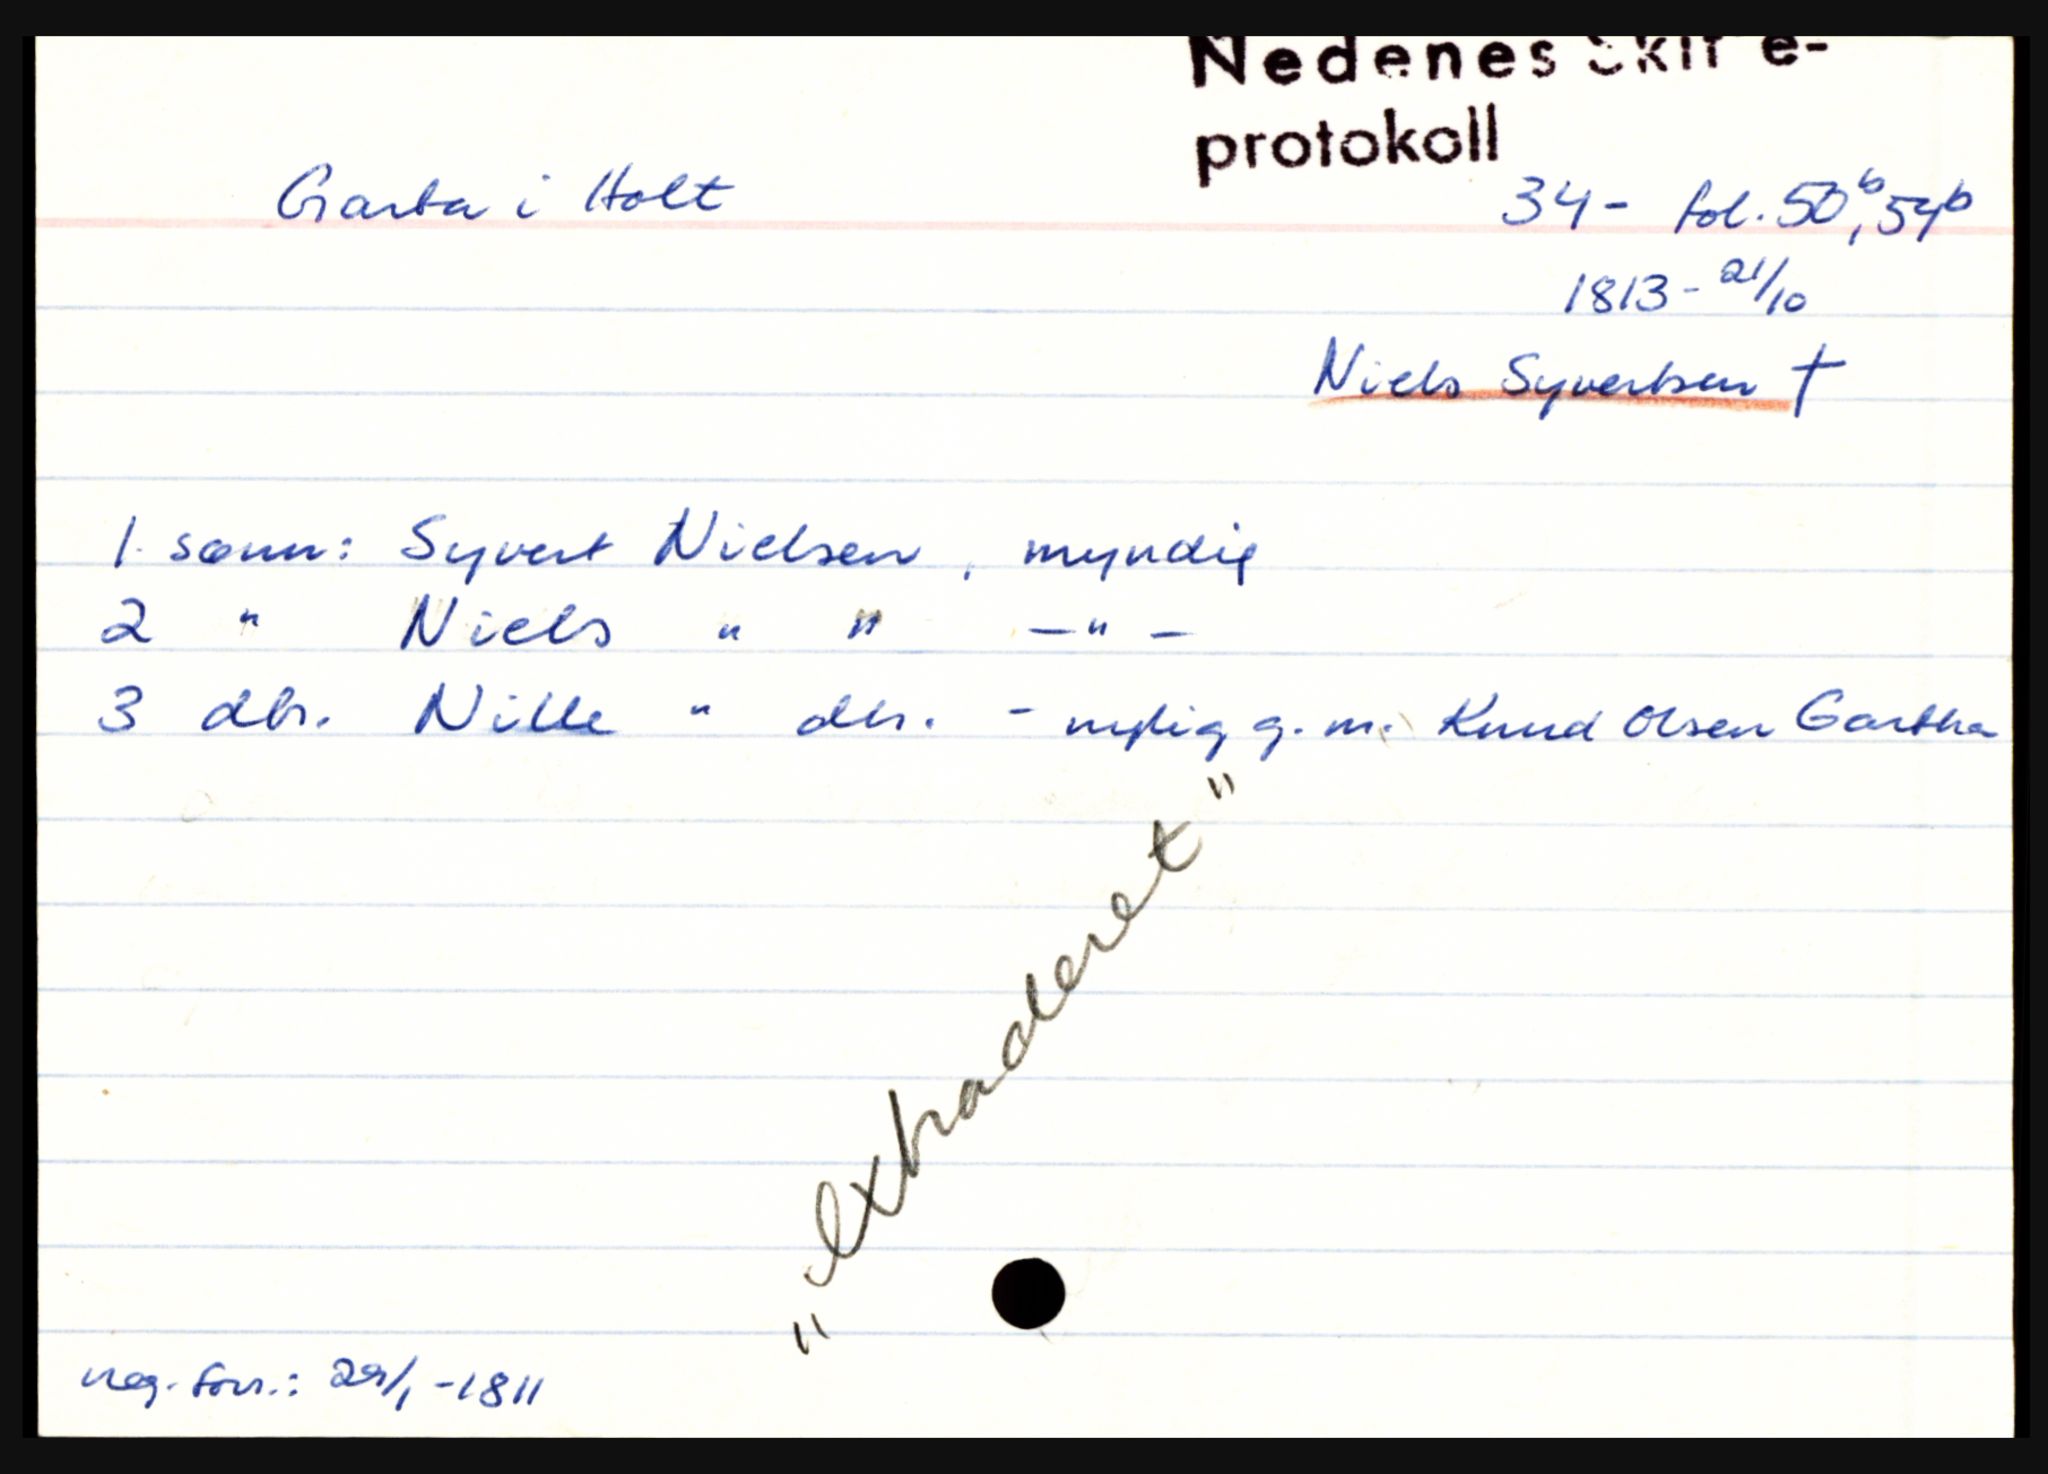 Nedenes Skifte-
protokoll
Garta i Holt
34- fol. 50b, 54b
1813 - 21/10
Niels Syvertsen †
1. sønn: Syvert Nielsen, myndig
2 " Niels " " — " —
3 dtr. Nille " dtr. - myndig g. m. Knud Olsen Gartha
"extraderet"
reg. forr.: 29/1 - 1811